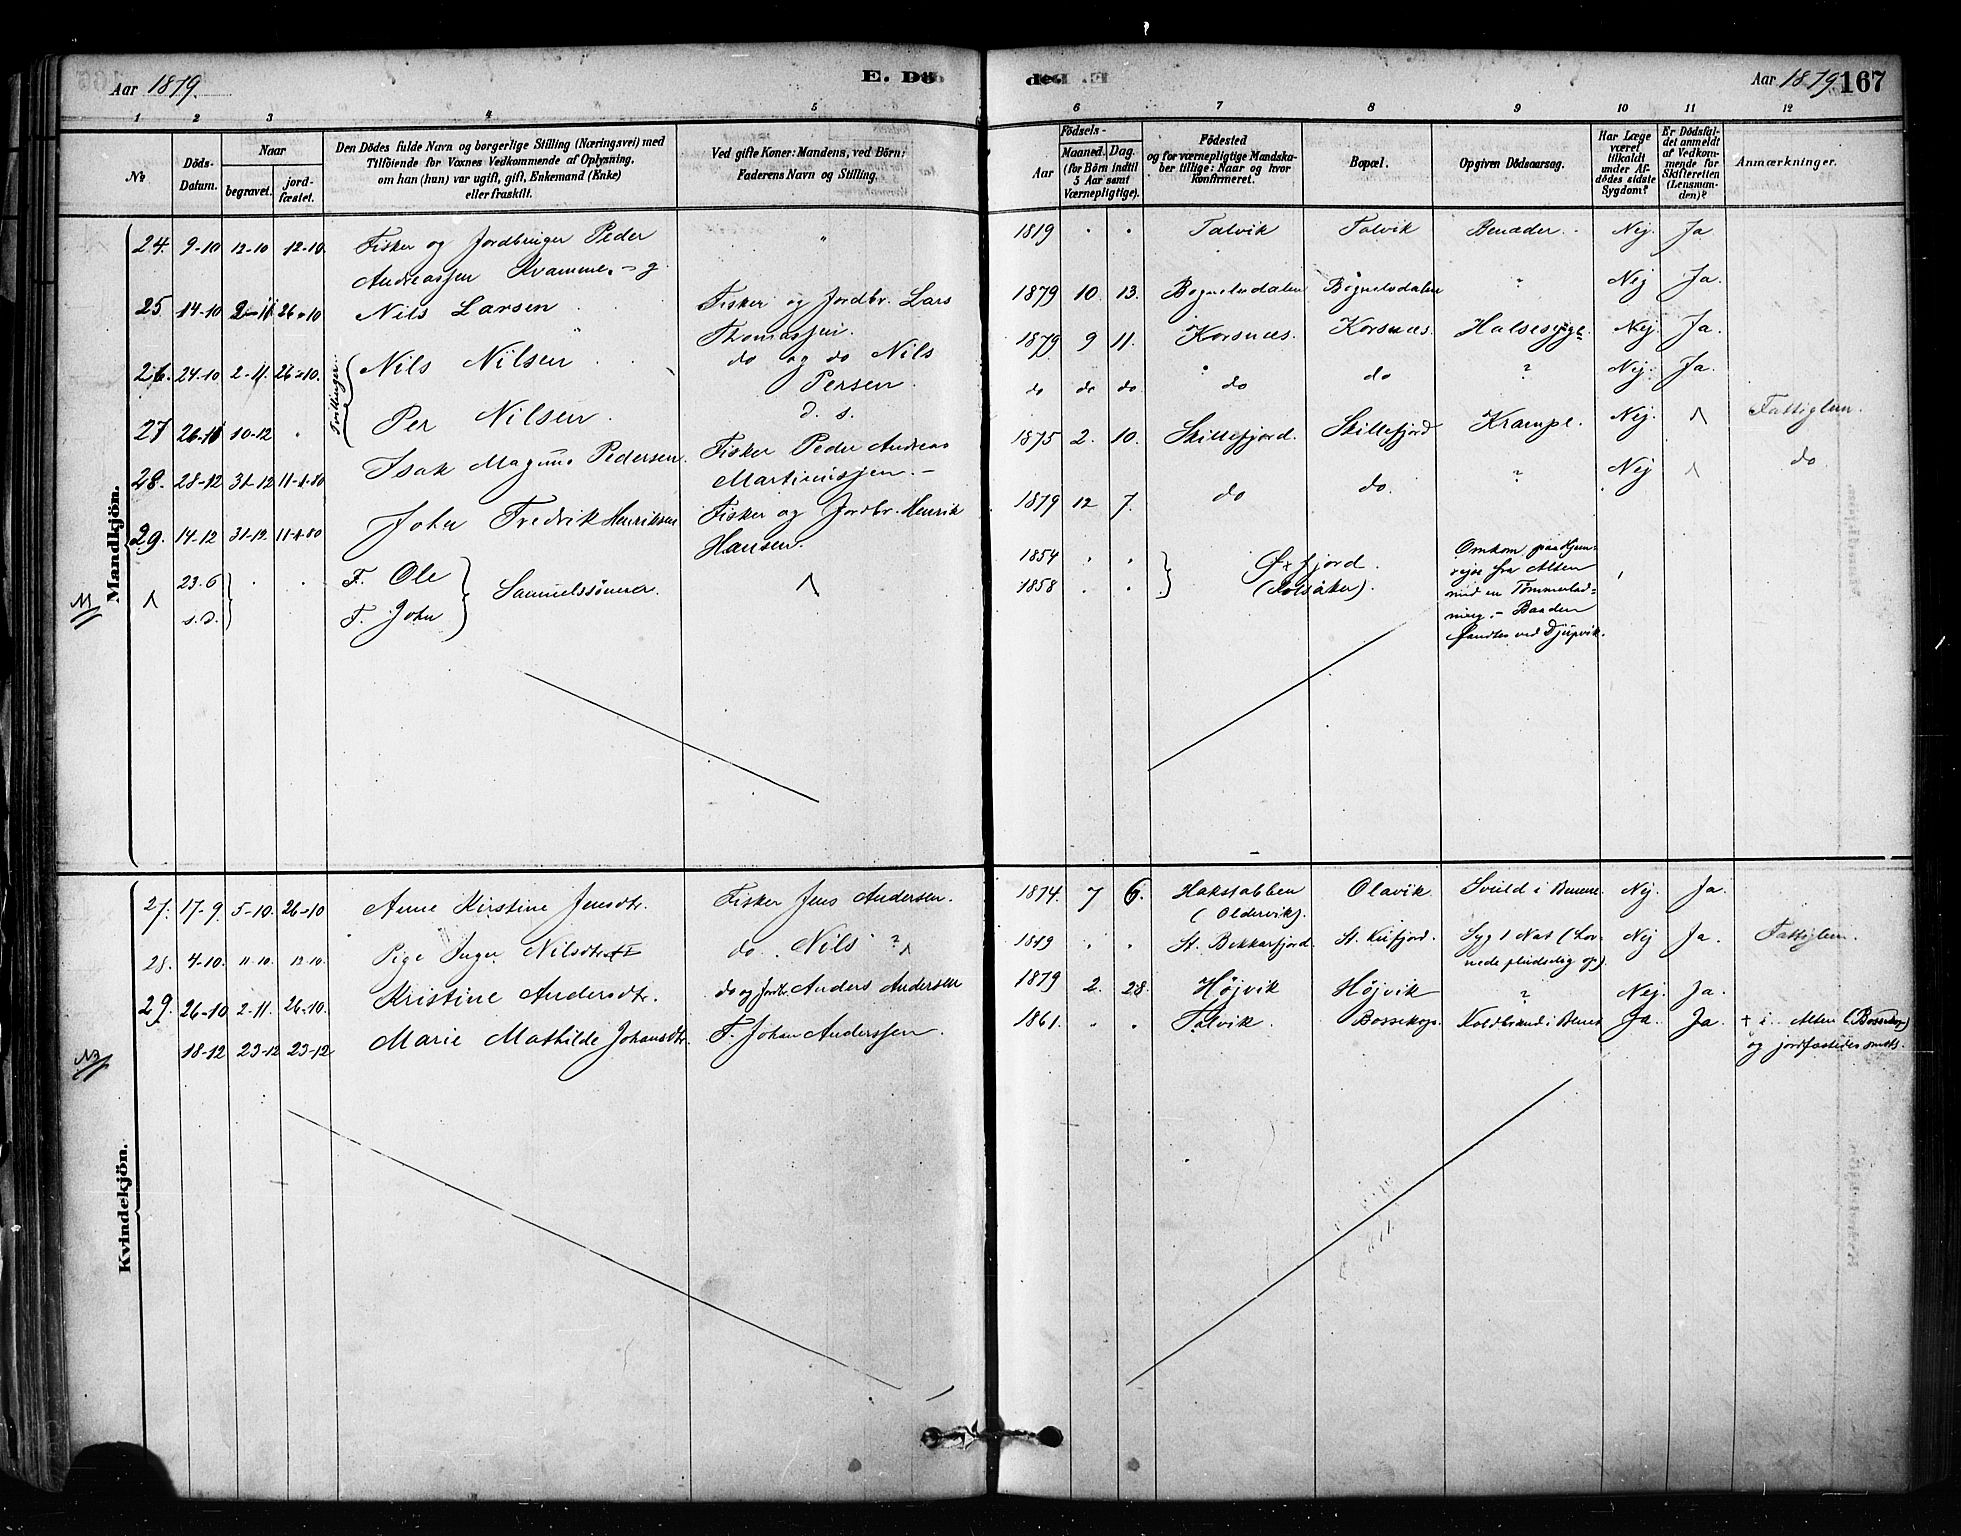 Aar 1879.
E. Dö
1 2 3 4 5
№
Döds-
Datum.
Naar
begravet.
jord-
fæstet.
Den Dödes fulde Navn og borgerlige Stilling (Næringsvei) med
Tilföiende for Voxnes Vedkommende af Oplysning,
om han (hun) var ugift, gift, Enkemand (Enke)
eller fraskilt.
Ved gifte Koner: Mandens, ved Börn:
Faderens Navn og Stilling.
Mandkjön.
24. 9-10 12-10 12-10. Fisker og Jordbruger Peder "
Andreassen Kvamme. - g
25 14-10 2-11 26-10 Nils Larsen Fisker og Jordbr. Lars
Thomassen.
Tvillinger
26. 24-10 2-11. 26-10. Nils Nilsen do og do Nils
Persen.
27 10-12 Per Nilsen. d. s.
28. 28-12 31-12 11-1-80 Isak Magnus Pedersen. Fisker Peder Andreas
Martinussen. -
29. 14-12 31-12. 11-1-80 John Fredrik Henriksen Fisker og Jordbr. Henrik
Hansen.
23.6 F. Ole
s.d. F. John Samuelssönner.
Kvindekjön.
27. 17-9. 5-10. 26-10 Anne Kirstine Jensdtr. Fisker Jens Andersen.
28. 4-10. 11-10. 12-10. Pige Inger Nilsdtr do. Nils ?
29. 26-10 2-11. 26-10. Kristine Andersdtr. do og Jordbr. Anders Andersen
18-12 23-12 23-12. Marie Mathilde Johansdtr. F. Johan Anderssen.
de.
Aar 1879. 167
6 7 8 9 10 11 12
Födsels-
Aar
Maaned. Dag.
(for Börn indtil
5 Aar samt
Værnepligtige).
Födested
og for værnepligtige Mandska-
ber tillige: Naar og hvor
Konfirmeret.
Bopæl.
Opgiven Dödsaarsag.
Har Læge
været
tilkaldt
under Af-
dödes sidste
Sygdom?
Er Dödsfal-
det anmeldt
af Vedkom-
mende for
Skifteretten
(Lensman-
den)?
Anmærkninger.
1819 " " Talvik Talvik Benæder. Nej. Ja
1879 10. 13. Bognelvdalen Bognelvdalen " Nej Ja.
1879 9 11. Korsnæs. Korsnæs. Halsesyge Nej. Ja.
do do do do do ? Nej. Ja.
1875 2. 10. Skillefjord. Skillefjord Krampe. Nej. Fattiglem.
1879 12 7. do do. ? Nej do
1854 " "
1858 " " Øxfjord. Omkom paa Hjem-
rejse fra Alten
med en Tømmerlad-
ning. - Baaden
fandtes ved Djupvik.
1874. 7 6. Hakstabben Olavik. Svuld i Benene. Nej. Ja.
(Oldervik).
1819 " " St. Bekkarfjord. St. Sygt Nat Nej Ja. Fattiglem.
nede pludselig op).
1879 2. 28. Højvik Højvik ? Nej. Ja.
1861. " " Talvik. Bossekop. Koldbrand i Benet Ja. Ja. + i Alten (Bossekop)
og jordfæstedes smsts.